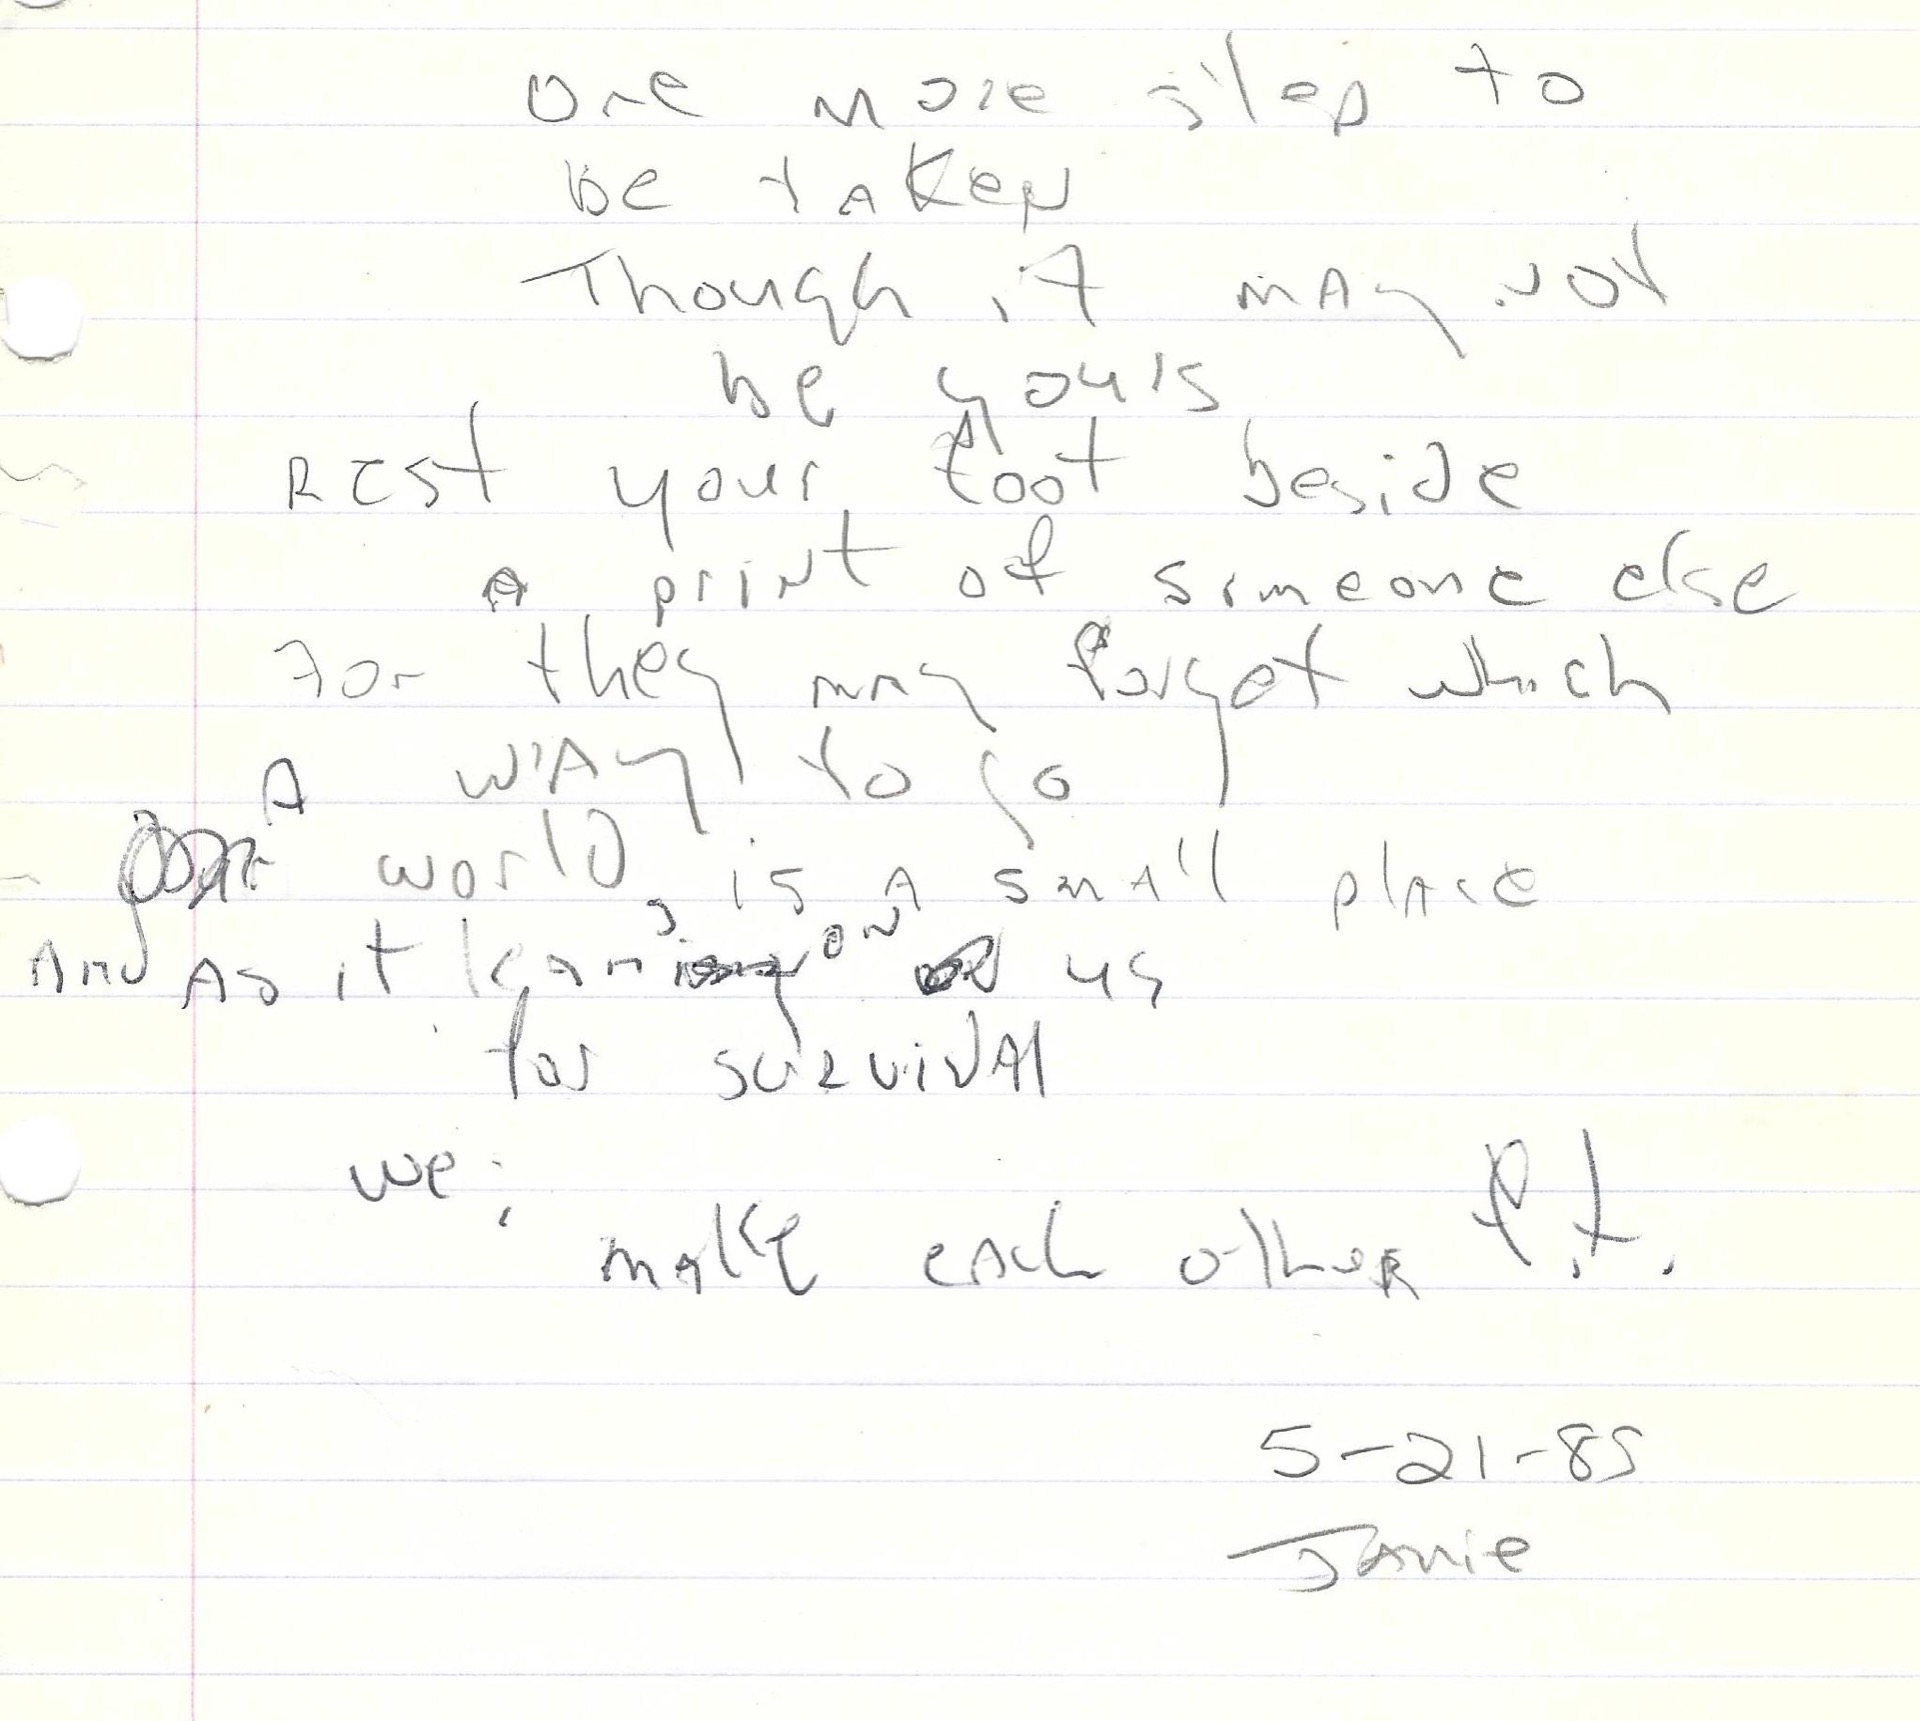 one more step to
be taken
Though it may not
be yours
Rest your foot beside
A print of someone else
For they may forget which
way to go
A world, is a small place
And As it leans on us
for survival
we;
make each other fit.
5-21-85
Janie